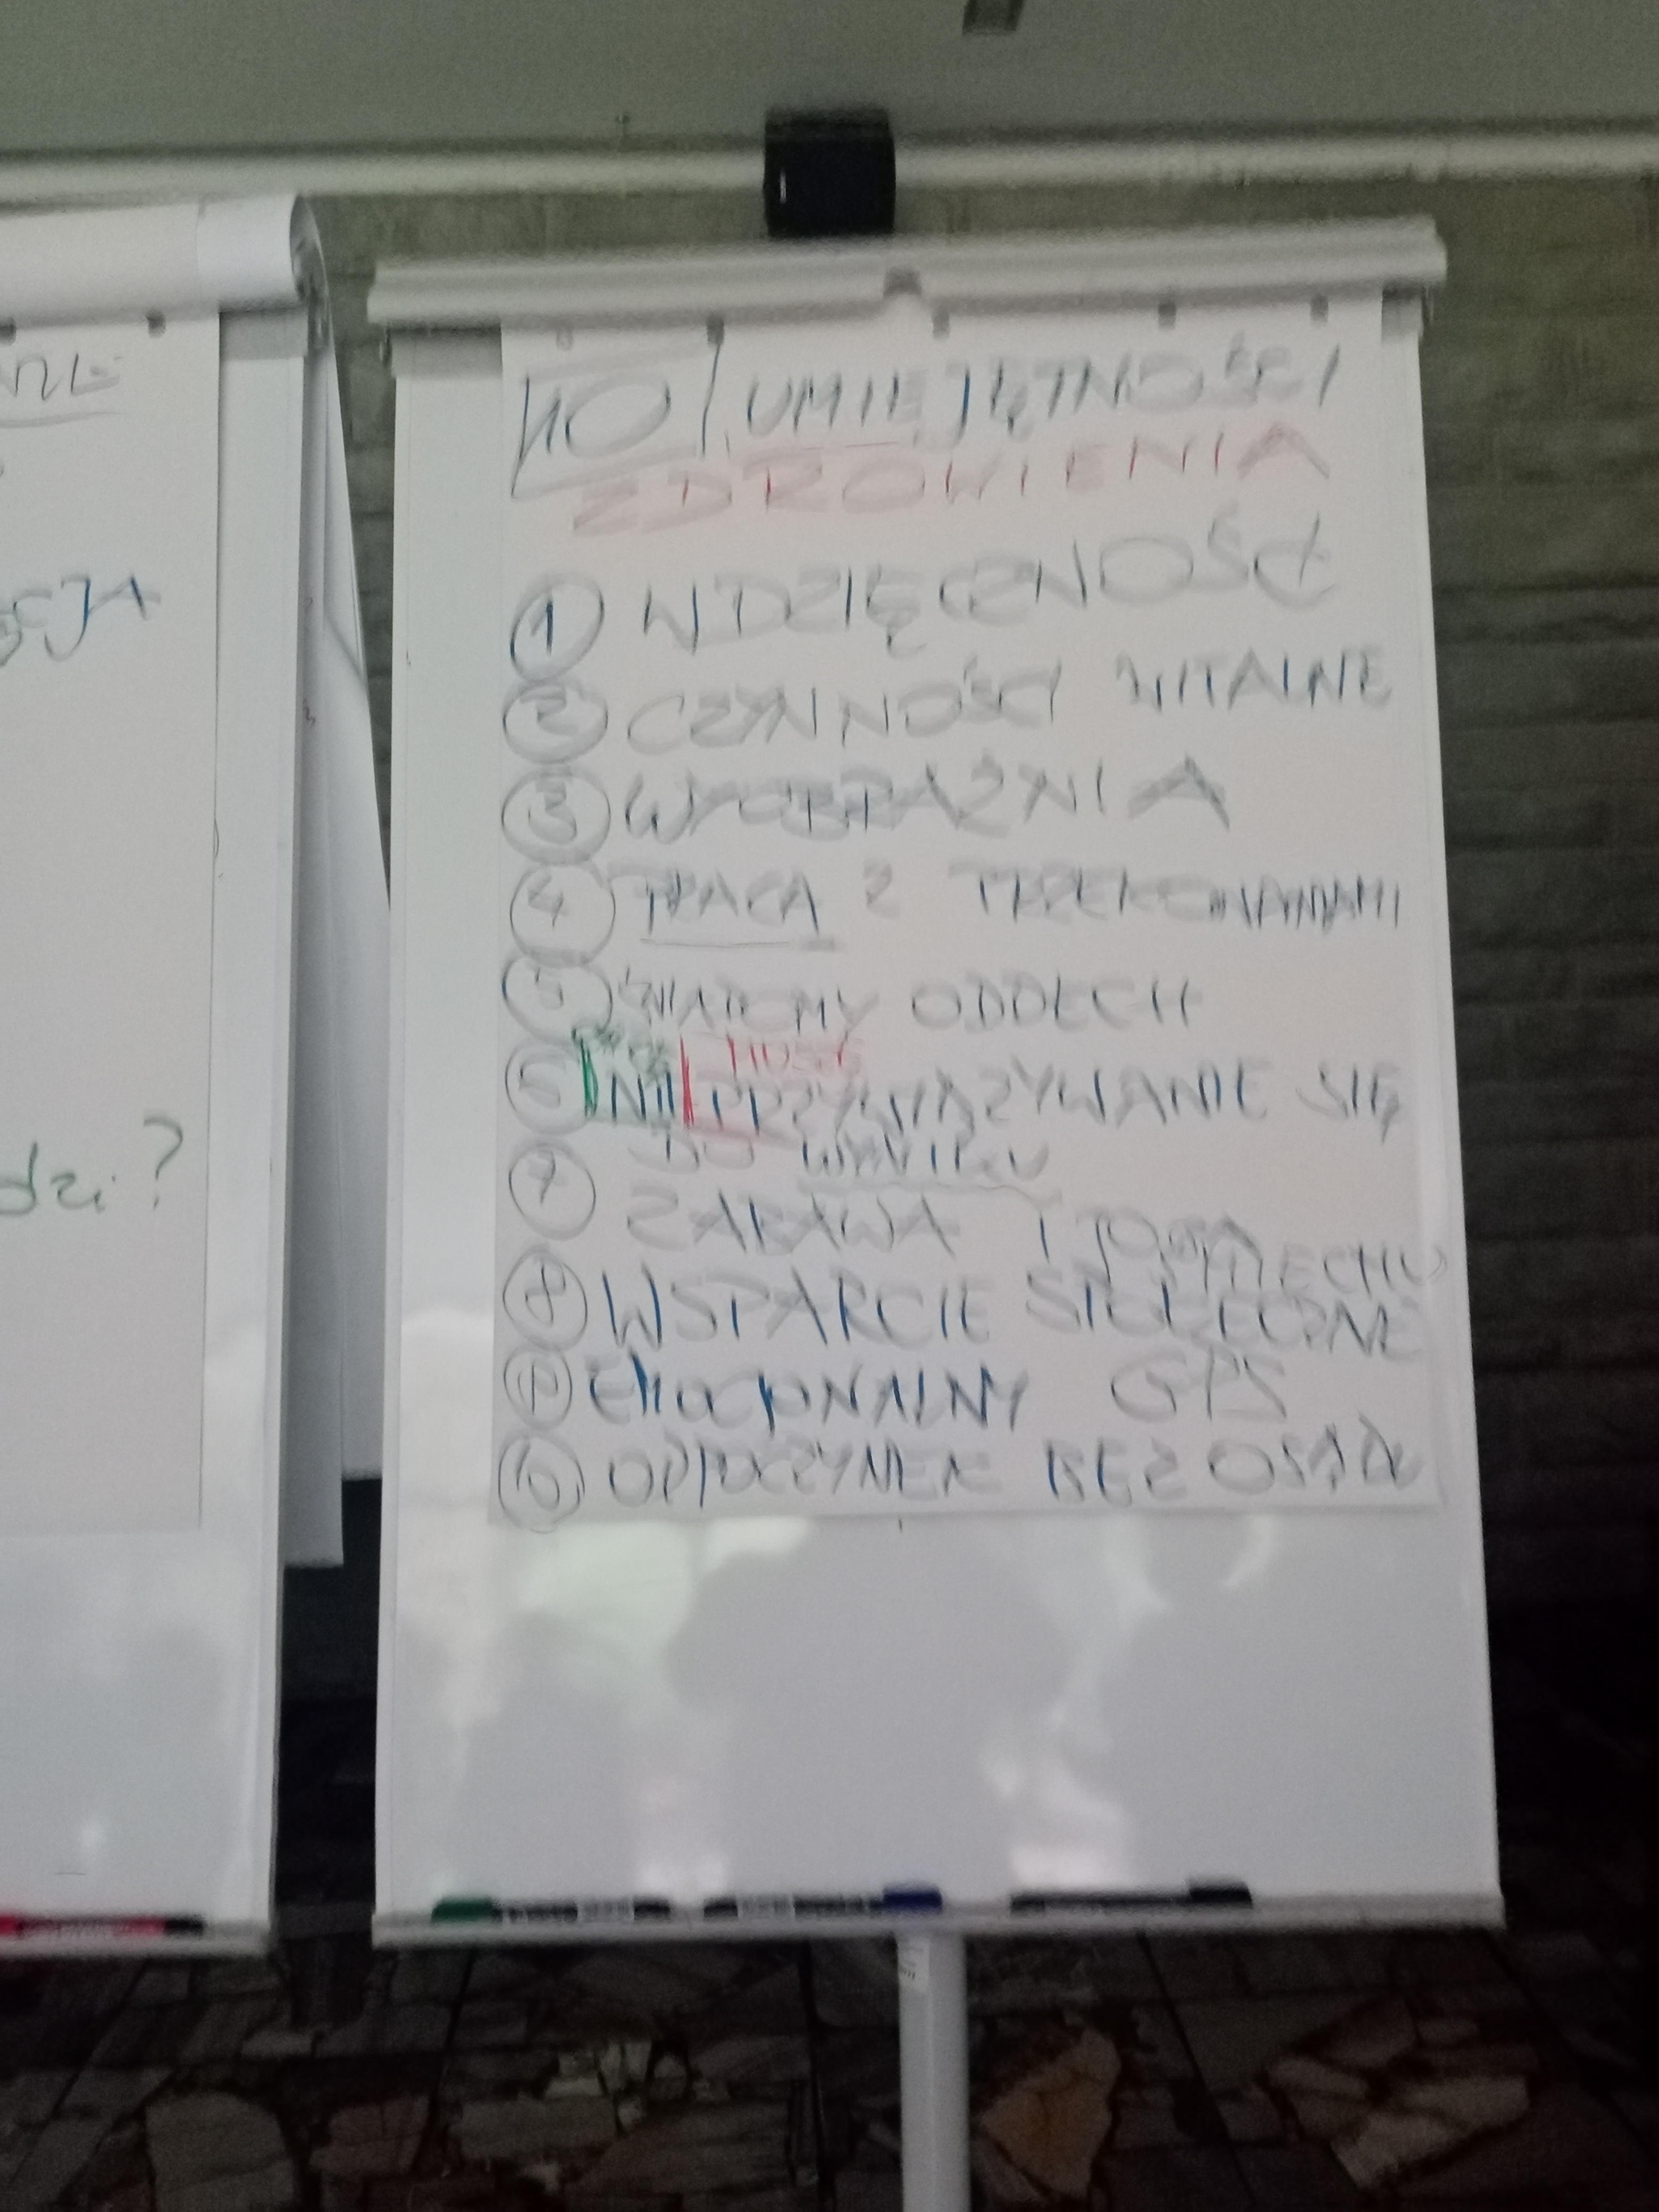 SCJA
dzi?
10 UMIEJĘTNOŚCI
ZDROWIENIA
1 WDZIĘCZNOŚĆ
2 CZYNNOŚCI WITALNE
3 WYOBRAŹNIA
4 PRACA Z PRZEKONANIAMI
5 ŚWIADOMY ODDECH
6 NIE PRZYWIĄZYWANIE SIĘ
DO WYNIKU
7 ZABAWA I JOGA
ŚMIECHU
8 WSPARCIE SPOŁECZNE
EMOCJONALNY GPS
10 ODPOCZYNEK BEZ OSĄDU